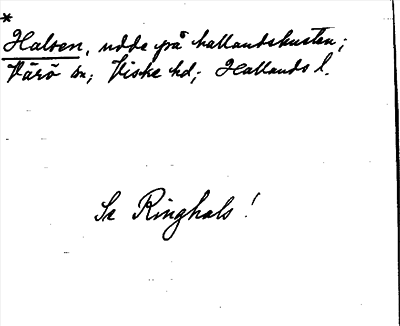 *
Halsen, udde på hallandskusten;
Värö sn; Viske hd; Hallands l.
Se Ringhals!